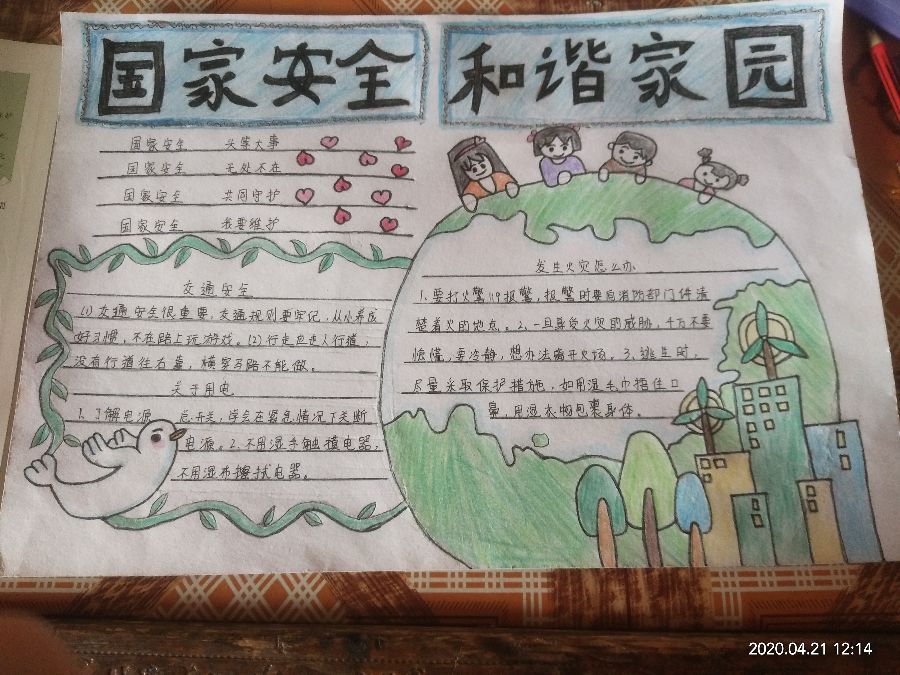 国家安全 和谐家园
国家安全 头等大事
国家安全 无处不在
国家安全 共同守护
国家安全 我要维护
交通安全
(1)交通安全很重要,交通规则要牢记,从小养成
好习惯,不在路上玩游戏。(2)行走应走人行道,
没有行道往右靠,横穿马路不能做。
关于用电
1.了解电源总开关,学会在紧急情况下关断
电源。2.不用湿手触摸电器,
不用湿布擦拭电器。
发生火灾怎么办
1.要打火警119报警,报警时要向消防部门讲清
楚着火的地点。2.一旦身负火灾的威胁,千万不要
惊慌,要冷静,想办法离开火场。3.逃生时,
尽量采取保护措施,如用湿毛巾捂住口
鼻,用湿衣物包裹身体。
2020.04.21 12:14